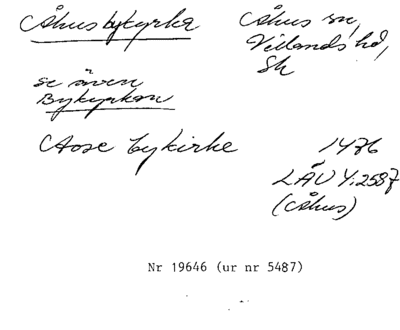 Åhus bykyrka
Åhus sn,
Villands hd,
Sk
se även
Bykyrkan
Aose bykirke
1476
LÄU 4:2587
(Åhus)
Nr 19646 (ur nr 5487)